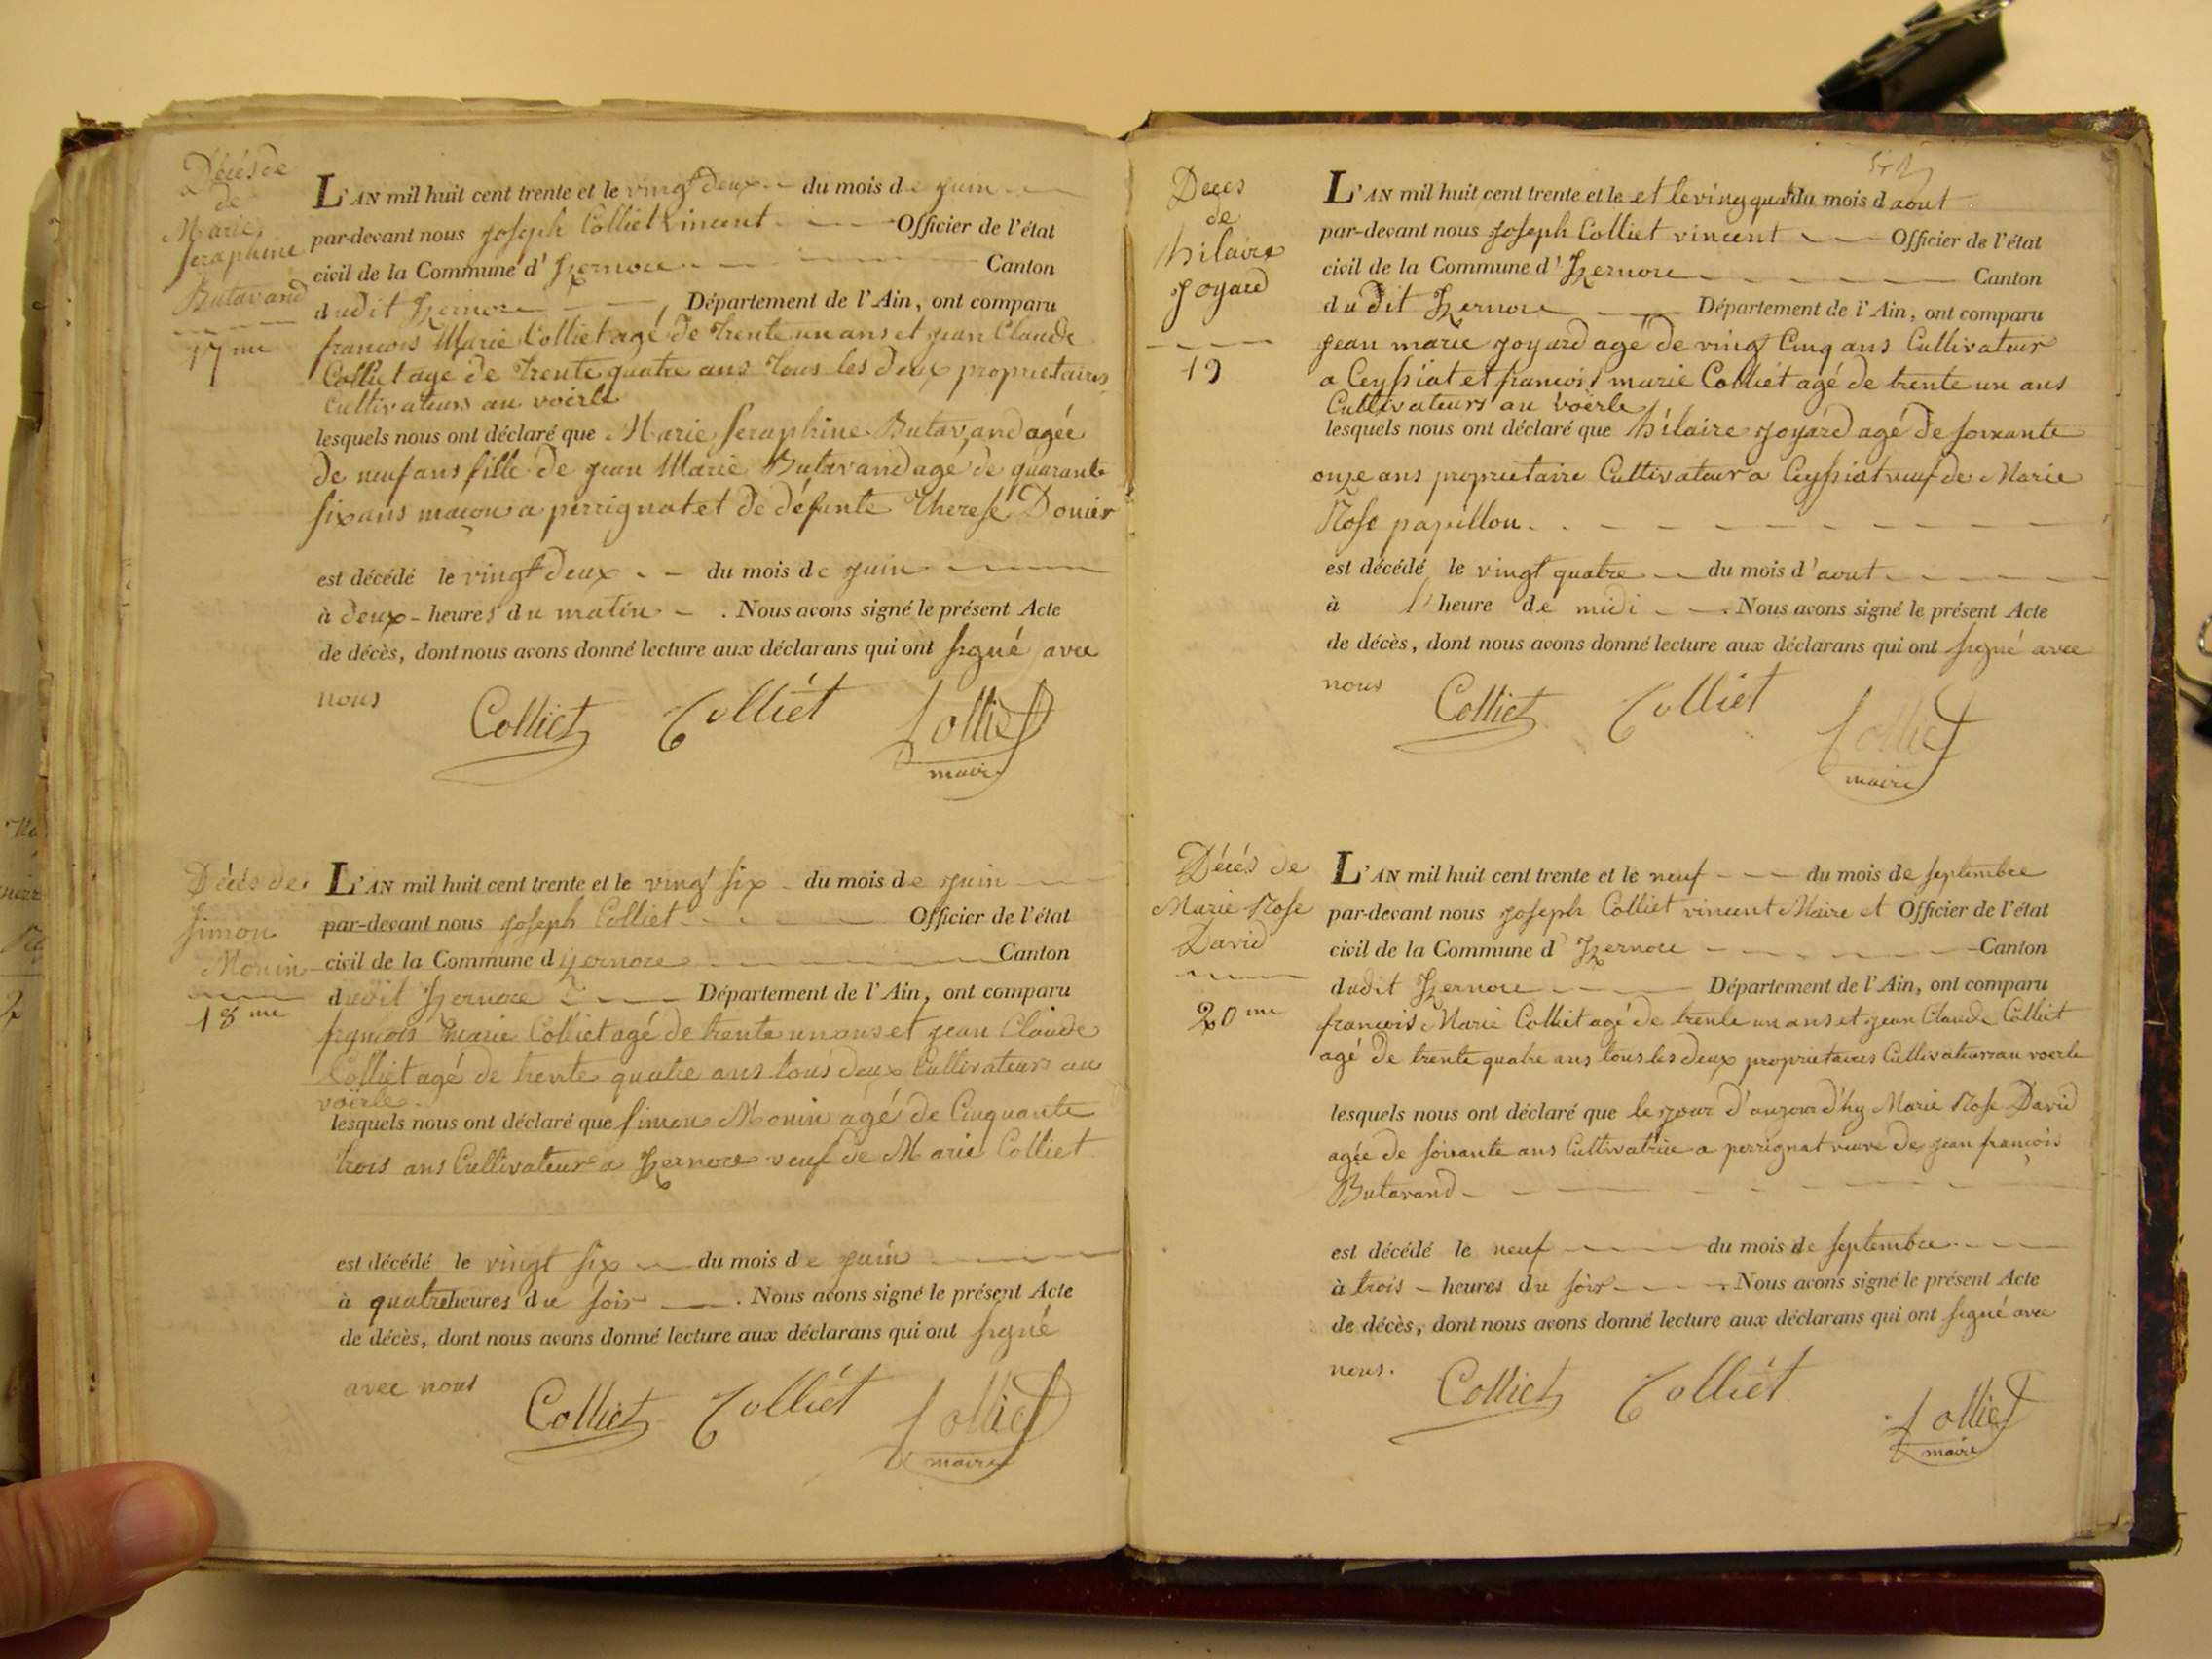 Décés de
de
Marie
Seraphine
Butavand
17 me
L'AN mil huit cent trente et le vingt deux du mois de juin
par-devant nous Joseph Colliet Vincent Officier de l'état
civil de la Commune d'Izernore Canton
dudit Izernore Département de l'Ain, ont comparu
francois Marie Colliet agé de trente un ans et jean Claude
Colliet age de trente quatre ans tous les deux proprietaires
Cultivateurs au voerle
lesquels nous ont déclaré que Marie Seraphine Butavand agée
de neuf ans fille de jean Marie Butavand agé de quarante
six ans maçon a perrignat et de défunte Therese Donier
est décédé le vingt deux du mois de juin
à deux heures du matin . Nous avons signé le présent Acte
de décès, dont nous avons donné lecture aux déclarans qui ont signé avec
nous
Colliet Colliét Colliet
maire
Décés de
Simon
Monin
18 me
L'AN mil huit cent trente et le vingt six du mois de juin
par-devant nous Joseph Colliet Officier de l'état
civil de la Commune d'yzernore Canton
dudit Izernore Département de l'Ain, ont comparu
françois marie Colliet agé de trente un ans et jean Claude
Colliet agé de trente quatre ans tous deux Cultivateurs au
voërle
lesquels nous ont déclaré que Simon Monin agé de Cinquante
trois ans Cultivateur a Izernore veuf de Marie Colliet
est décédé le vingt six du mois de juin
à quatre heures du soir . Nous avons signé le présent Acte
de décès, dont nous avons donné lecture aux déclarans qui ont signé
avec nous
Colliet Colliét Colliet
maire
Deces
de
hilaire
Joyard
19
L'AN mil huit cent trente et le et le ving quat du mois d aout
par-devant nous Joseph Colliet vincent Officier de l'état
civil de la Commune d'Izernore Canton
dudit Izernore Département de l'Ain, ont comparu
jean marie joyard agé de vingt Cinq ans Cultivateur
a Ceyssiat et francois marie Colliet agé de trente un ans
Cultivateurs au voërle
lesquels nous ont déclaré que hilaire joyard agé de soixante
onze ans proprietaire Cultivateur a Ceyssiat veuf de Marie
Rose papillon
est décédé le vingt quatre du mois d'aout
à 1 heure de midi . Nous avons signé le présent Acte
de décès, dont nous avons donné lecture aux déclarans qui ont signé avec
nous
Colliet Colliet Colliet
maire
Décés de
Marie Rose
David
20 me
L'AN mil huit cent trente et le neuf du mois de septembre
par-devant nous Joseph Colliet vincent Maire et Officier de l'état
civil de la Commune d'Izernore Canton
dudit Izernore Département de l'Ain, ont comparu
francois Marie Colliet agé de trente un ans et jean Claude Colliet
agé de trente quatre ans tous les deux proprietaires Cultivateurs au voerle
lesquels nous ont déclaré que le jour d'aujourd'hy Marie Rose David
agée de soixante ans Cultivatrice a perrignat veuve de jean françois
Butavand
est décédé le neuf du mois de septembre
à trois heures du soir . Nous avons signé le présent Acte
de décès, dont nous avons donné lecture aux déclarans qui ont signé avec
nous.
Colliet Colliét Colliet
maire